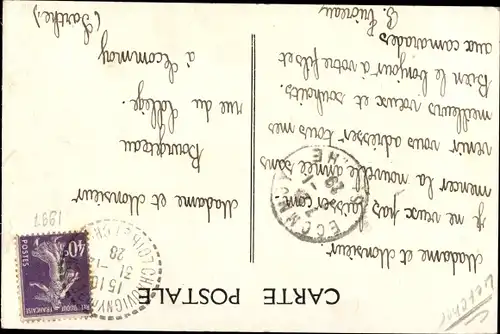 CARTE POSTALE
Madame et Monsieur
je ne veux pas laisser com
mencer la nouvelle année sans
venir vous adresser tous mes
meilleurs vœux et souhaits.
Bien le bonjour à votre fils et
aux camarades
Madame et Monsieur
Bourgeteau
rue du Collège.
à Ecommoy
(Sarthe)
ECOMMOY
28
31-12
15 10
40c
POSTES
1997